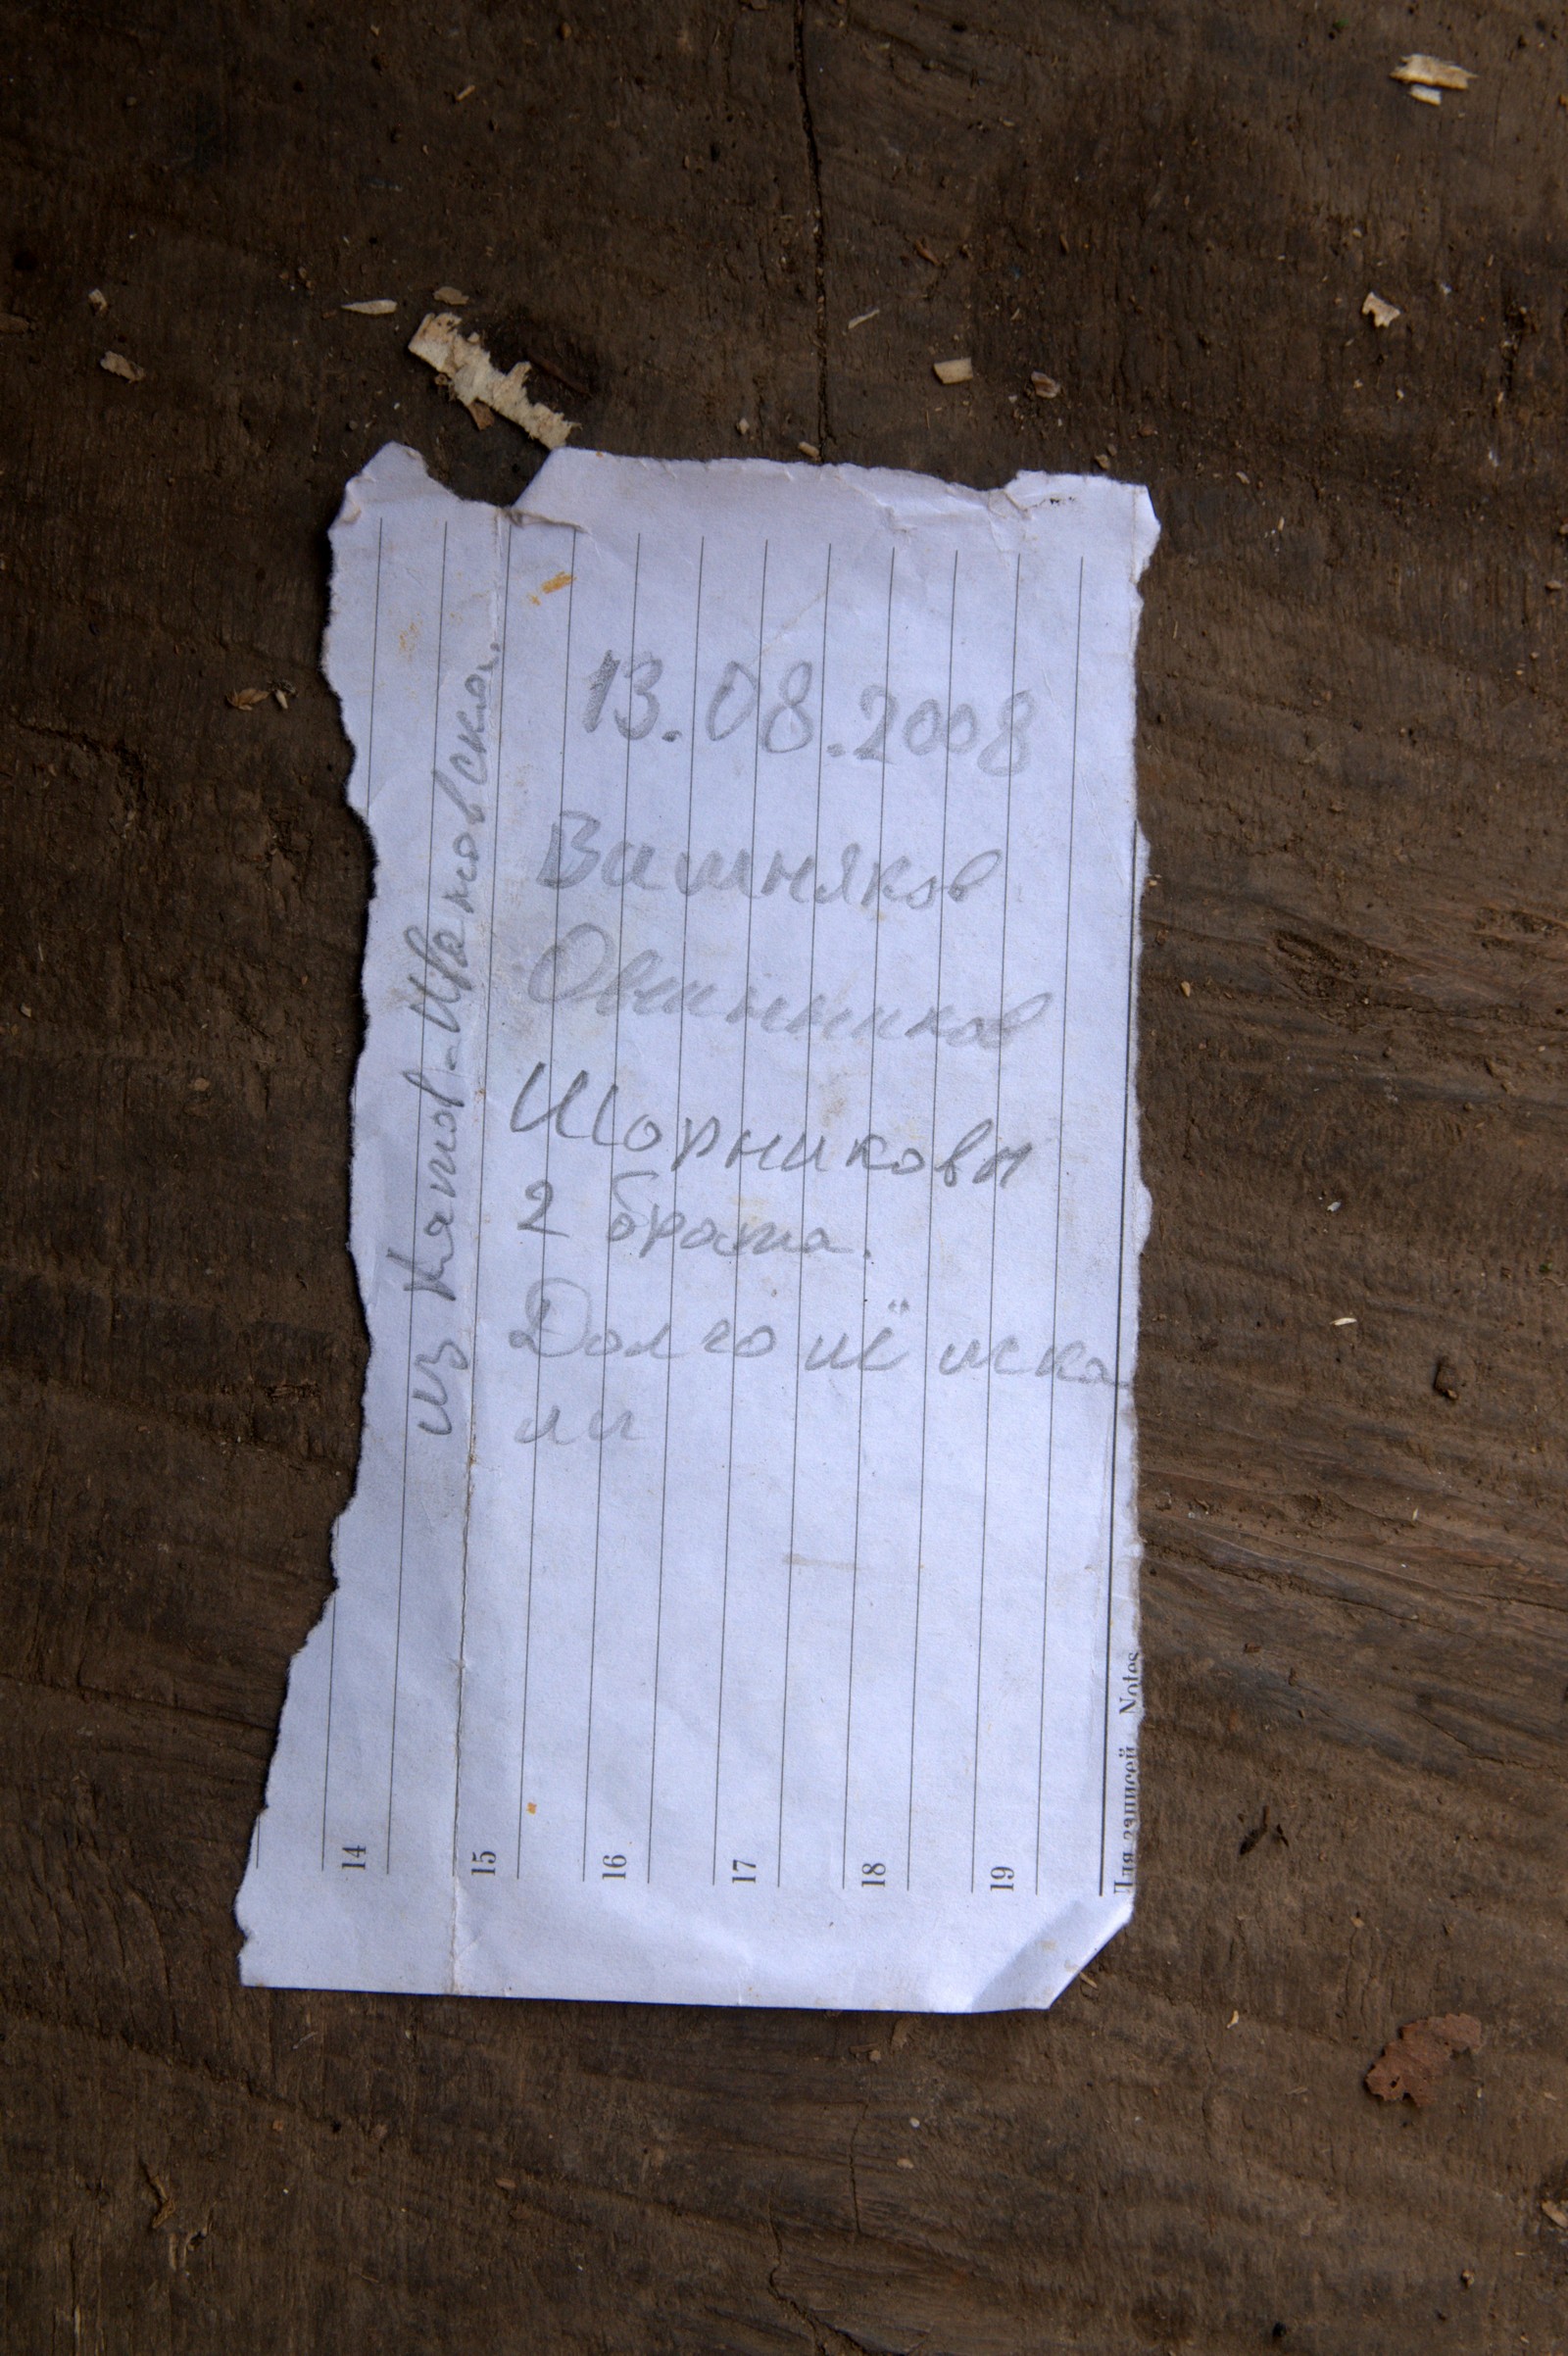 13.08.2008
Вишняков
Овчинников
Шорниковы
2 брата.
Долго её иска
ли
из Катав-Ивановска.
14
15
16
17
18
19
Для записей Notes